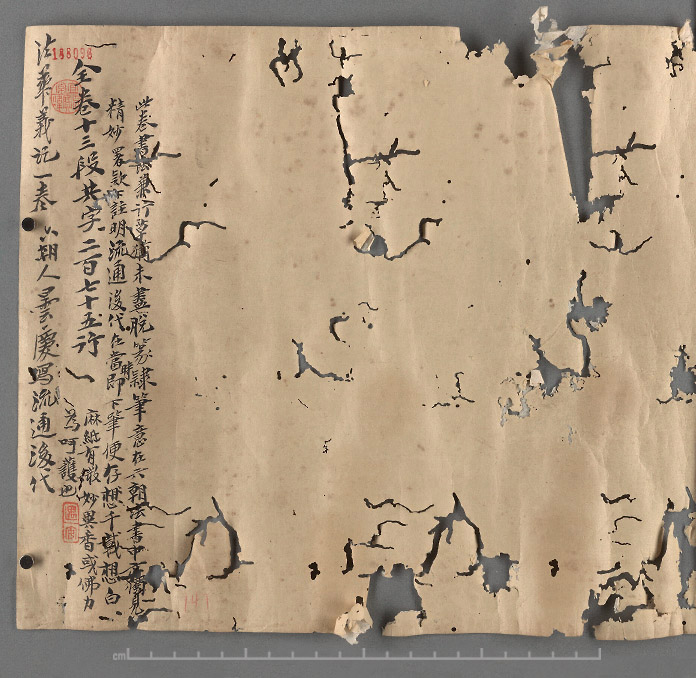 此卷書法兼行草猶未盡脫篆隸筆意在六朝法書中亦獨見
精妙署款註明流通後代在當時即下筆便存想千載想白
麻紙有微妙異香或佛力
為呵護也
全卷十三段共字二百七十五行
法華義記一卷 六朝人曇慶寫流通後代
188098
141
cm